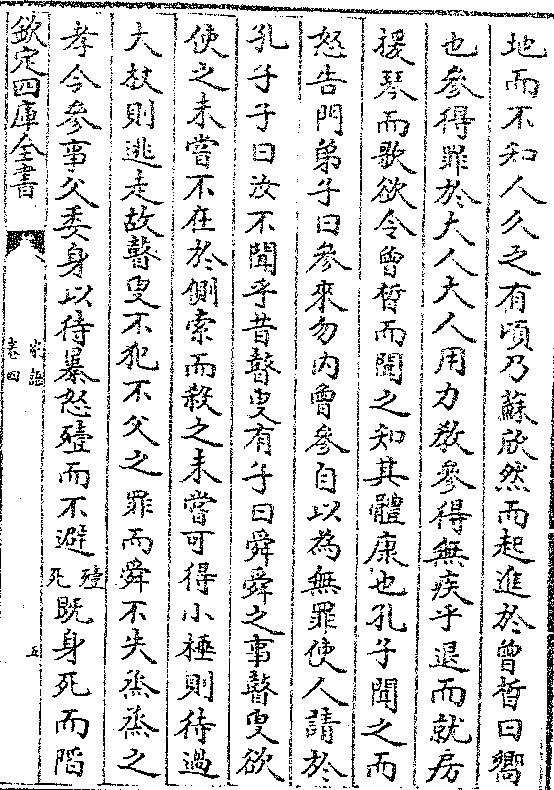 地而不知人久之有頃乃蘇欣然而起進於曾晳曰嚮
也參得罪於大人大人用力敎參得無疾乎退而就房
援琴而歌欲令曾晳而聞之知其體康也孔子聞之而
怒告門弟子曰參來勿内曾參自以為無罪使人請於
孔子子曰汝不聞乎昔瞽叟有子曰舜舜之事瞽叟欲
使之未嘗不在於側索而殺之未嘗可得小棰則待過
大杖則逃走故瞽叟不犯不父之罪而舜不失烝烝之
孝今參事父委身以待暴怒殪而不避殪死既身死而陷
欽定四庫全書
家語
卷四
五